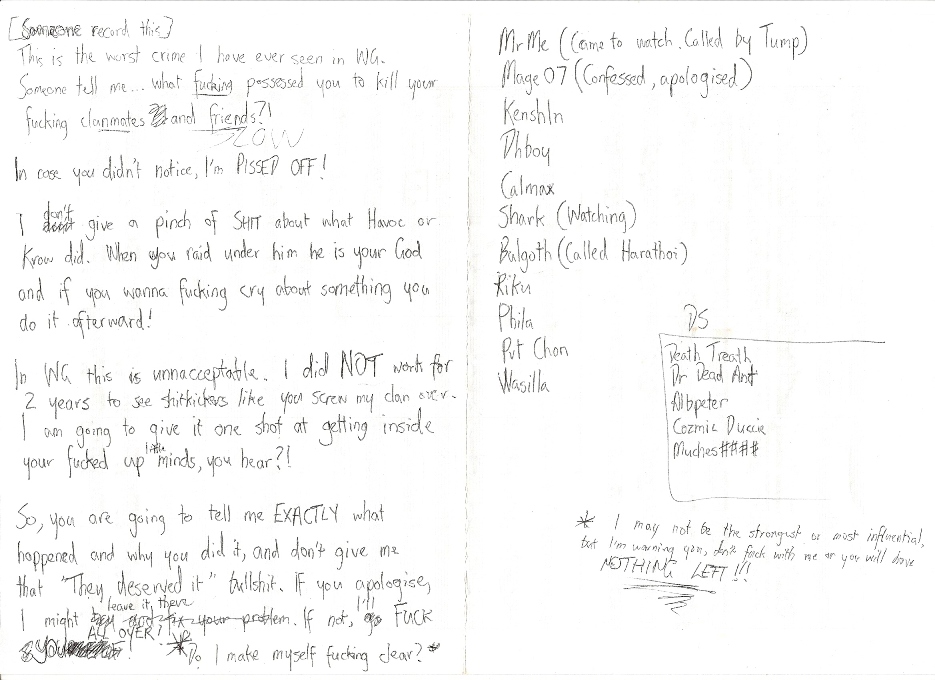 [Someone record this]
This is the worst crime I have ever seen in WG.
Someone tell me... what fucking possessed you to kill your
fucking clanmates and friends?!
ZOW
In case you didn't notice, I'm PISSED OFF!
I don't give a pinch of SHIT about what Havoc or
Krow did. When you raid under him he is your God
and if you wanna fucking cry about something you
do it afterward!
In WG this is unnacceptable. I did NOT work for
2 years to see shitkickers like you screw my clan over.
I am going to give it one shot at getting inside
your fucked up little minds, you hear?!
So, you are going to tell me EXACTLY what
happened and why you did it, and don't give me
that "They deserved it" bullshit. If you apologise,
I might leave it there. If not, I'll FUCK
you ALL OVER!
*Do I make myself fucking clear?*
Mr Me (Came to watch. Called by Tump)
Mage 07 (Confessed, apologised)
KenshIn
Dhboy
Calmax
Shark (Watching)
Balgoth (Called Harathoi)
Riku
Phila
Pvt Chon
Wasilla
DS
Death Treath
Dr Dead Ant
Albpeter
Cozmic Duccie
Muches####
* I may not be the strongest or most influential,
but I'm warning you, don't fuck with me or you will have
NOTHING LEFT!!!